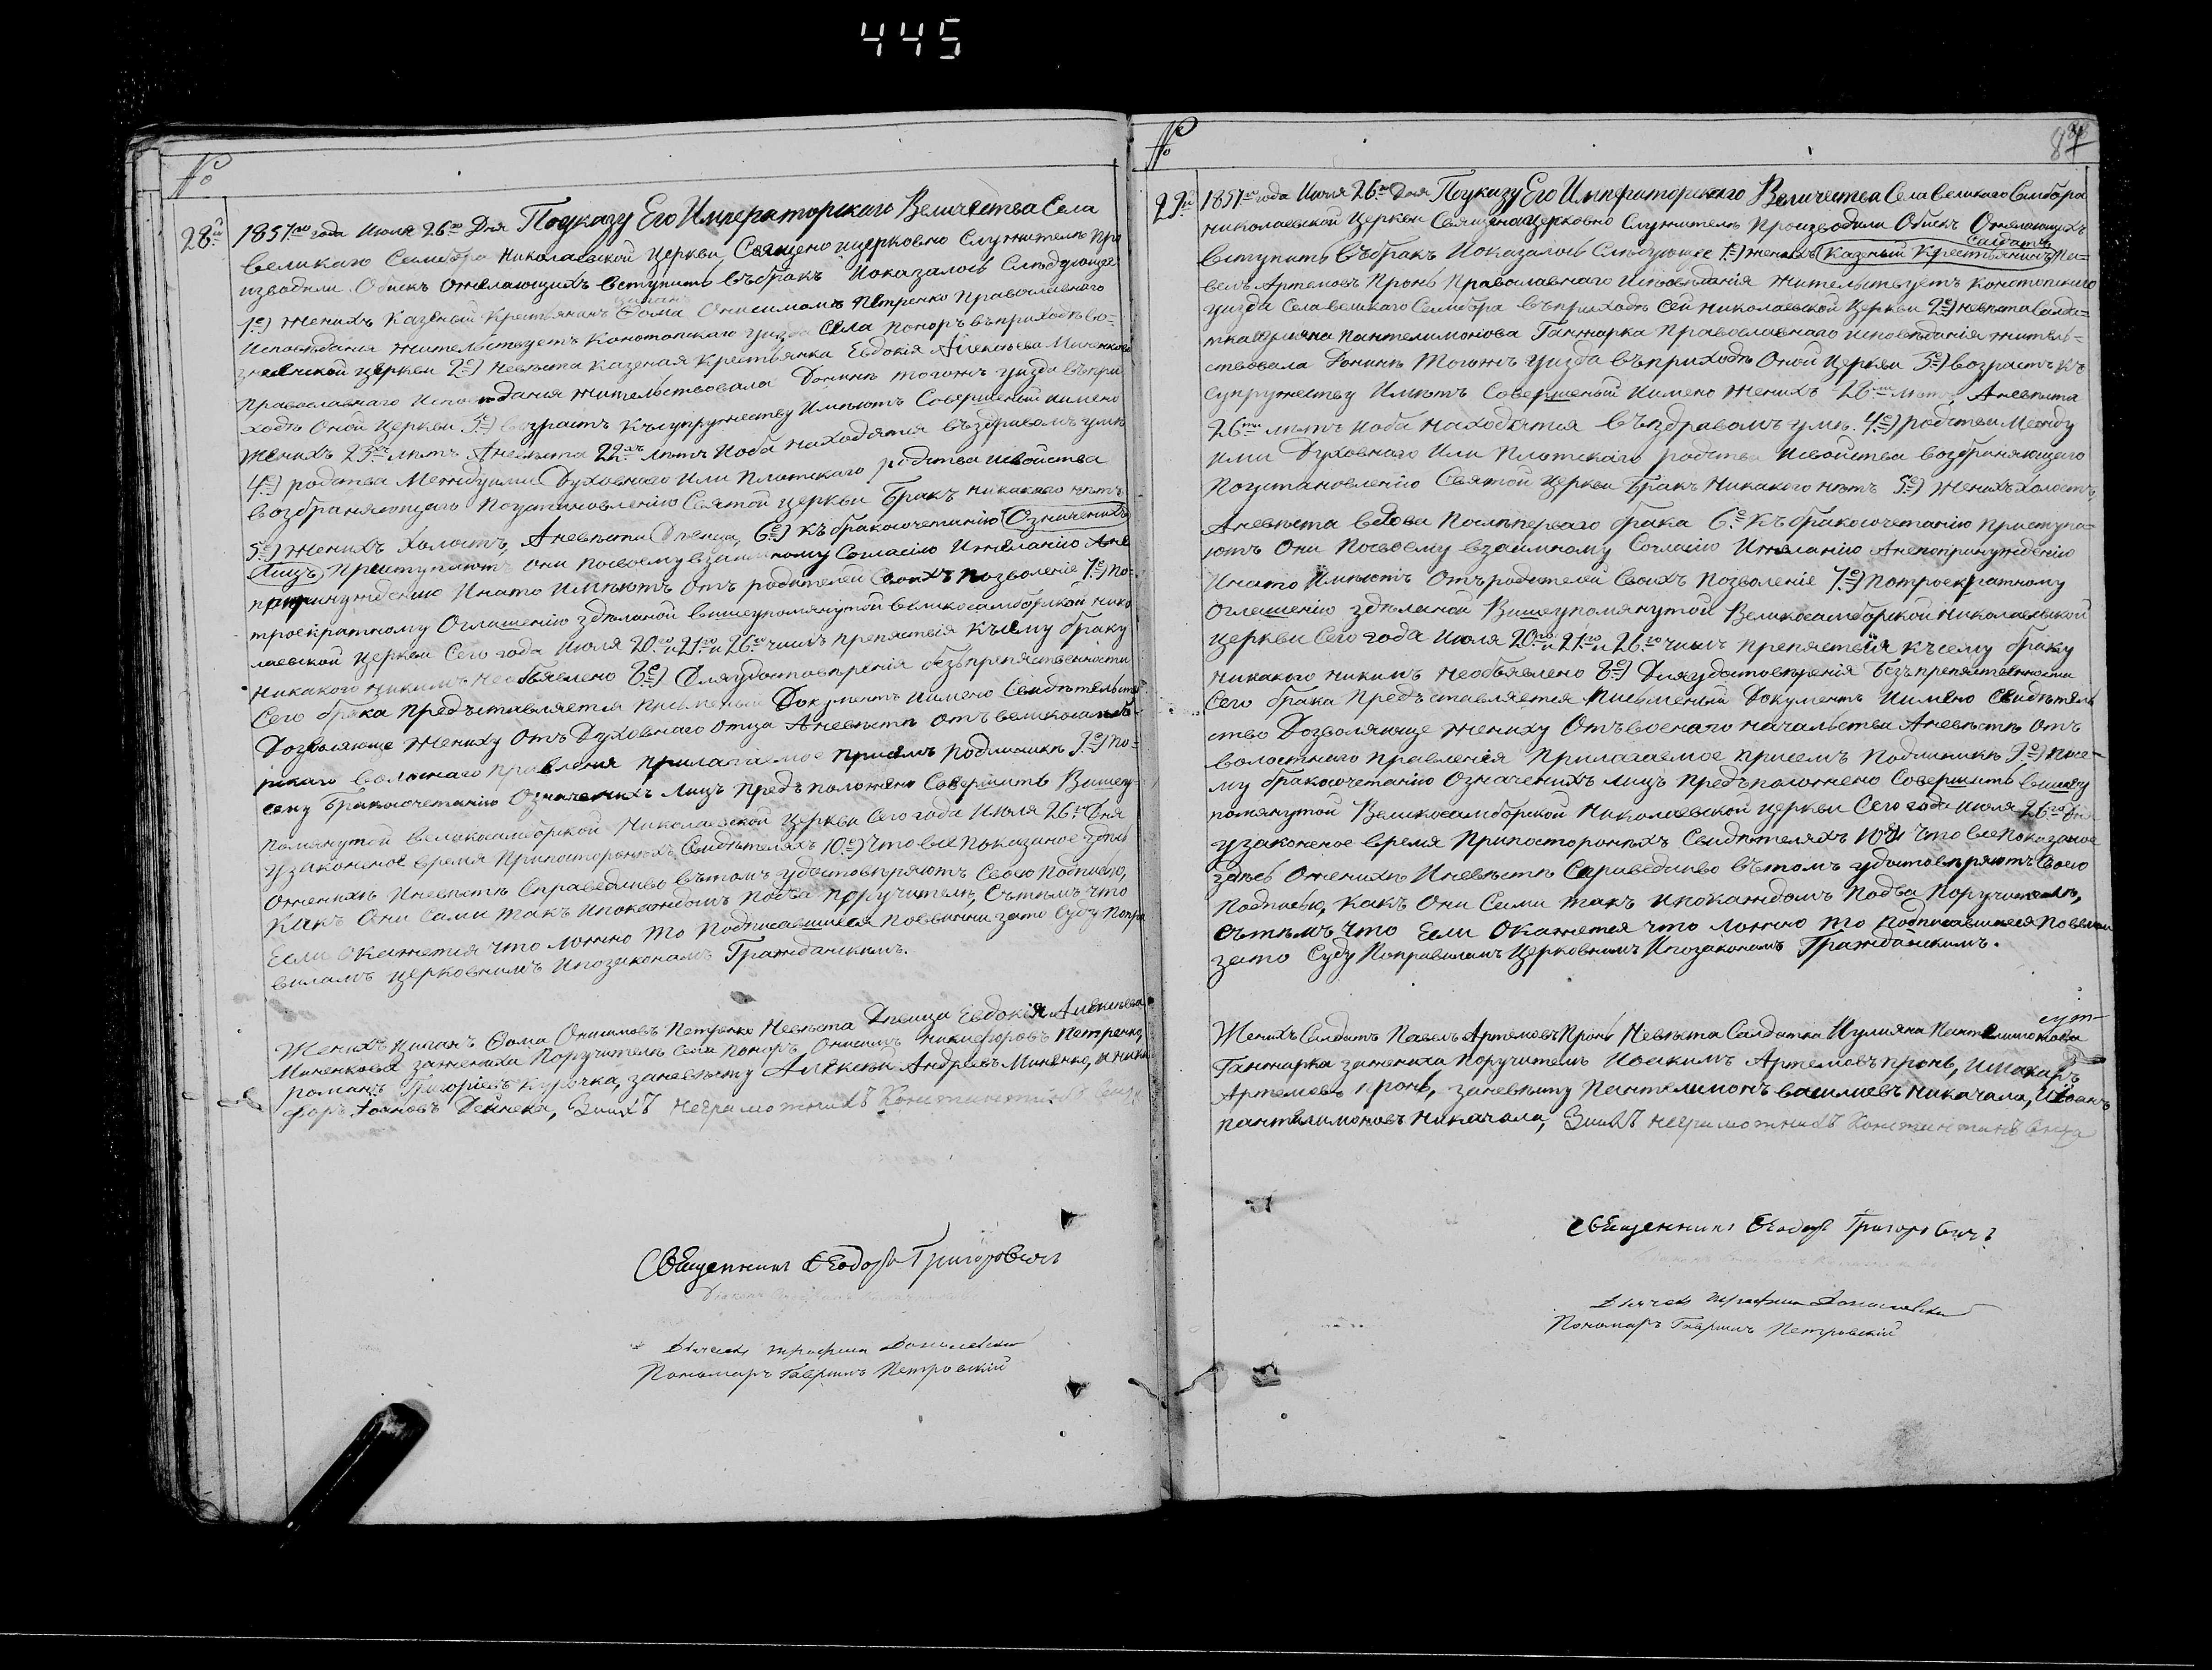 445
№
28й
1857го года Июля 26го Дня По указу Его Императорскаго Величества Села
великаго Самбора Николаевской Церкви, Священо ицерковно Служителѣ Про
изводили Обискъ Ожелающихъ вступить въбракъ Иоказалось Слѣдующее
циган
1е) Женихъ Казеный Крестьянин Ѳома Онисимовъ Петренко Православнаго
Исповѣдания Жительствуетъ Конотопскаго уизда Села Поноръ въприходѣ во=
церкви 2е) Невѣста Казеная Крестьянка Евдокія Алексѣева Миненкова
Православнаго Исповѣдания Жительствовала тогожъ уизда въпри
ходѣ Оной Церкви 3е) возрастъ Къ супружеству Имѣютъ Совершеный имено
Женихъ 23 лѣтъ Аневѣста 22хъ лѣтъ Иоба находятся въздравомъ умѣ
4е) родства Междуими Духовнаго Или Плотскаго родства исвойства
возбраняющаго Поустановлению Святой церкви Бракъ никакаго нѣтъ
5е) Женихъ Холостъ, Аневѣста Дѣвица, 6е) Къ бракосочетанію Означенихъ
Лицъ Приступаютъ они посвоему взаимному Согласію Ижеланію Ане
попринуждению Инато Имѣютъ Отъ родителей Своихъ позволеніе 7е) По=
троекратному Оглашенію зделаной вишеупомянутой великосамборской Нико
лаевской Церкви Сего года Июля 20го и 21го и 26го чиселъ препятствія Къ сему браку
никакого никимъ необъявлено 8е) Дляудостовѣренія безъпрепятственности
Сего брака Предъставляется писменый Документъ Иимено Свидѣтельство
Дозволяюще Жениху Отъ Духовнаго отца Аневѣстѣ отъ великосамбо
рскаго волостнаго правления прилагаемое присемъ подлиникѣ 9е) По=
сему бракосочетанію Означенихъ Лицъ предъположено Совершить Вишеу=
помянутой великосамборской Николаевской Церкви Сего года Июля 26го Дня
узаконеное время Припостороннихъ Свидѣтеляхъ 10е) Что все Показаное здѣсь
Оженихѣ Иневѣстѣ Справедливо вътомъ удостовѣряютъ Своею Подписью,
Какъ Они Сами такъ Ипокаждомъ Подва Поручителѣ, Сътѣмъ что
Если Окажется что ложно то Подписавшиеся Повинни зато Суду Попра
виламъ церковнимъ Ипозаконамъ Гражданскимъ.
Женихъ циганъ Ѳома Онисимовъ Петренко Невѣста Дѣвица Евдокія Алексѣева
Миненкова заженихa Поручителѣ Села Поноръ Онисимъ Никифоровъ Петренко,
романъ Григоріевъ Курочка, заневѣсту Алексѣй Андреевъ Миненко, Иники
форъ Іоановъ Дейнека, Заихъ неграмотнихъ Константинъ
Священникъ Ѳеодоръ Григоровичъ
Дьячекъ
Пономаръ Гавриилъ Петровскій
№
29й
1857го года Июля 26го Дня По указу Его Императорскаго Величества Села Великаго Самбора
Николаевской Церкви Священоицерковно Служителѣ Производили Обискъ Ожелающихъ
Салдатъ
вступить въбракъ Иоказалось Слѣдующее 1е) Женихъ Казеный Крестьянинъ Па=
велъ Артемовъ Пронь Православнаго Исповѣданія Жительствуетъ Конотопскаго
уизда Села великаго Самбора въприходѣ Сей Николаевской Церкви 2е) Невѣста Салда=
тка Иулияна Пантелимонова Ганжарка Православнаго исповѣданія Житель=
ствовала тогожъ уизда въприходѣ Оной Церкви 3е) возрастъ Къ
Супружеству Имѣютъ Совершеный Иимено Женихъ 28ми лѣтъ Аневѣста
26ти лѣтъ Иоба находятся въздравомъ умѣ. 4е) родства Между
Ими Духовнаго Или Плотскаго родства Исвойства возбраняющаго
Поустановленію Святой Церкви Бракъ Никакого нѣтъ 5е) Женихъ Холостъ,
Аневѣста вдова Послѣперваго брака 6е Къ бракосочетанію Приступа=
ютъ Они Посвоему взаимному Согласію Ижеланію Анепопринужденію
Инато Имѣютъ Отъ родителей Своихъ Позволеніе 7е) Потроекратному
Оглашенію здѣланой Вишеупомянутой Великосамборской Николаевской
церкви Сего года Июля 20го и 21го и 26го чиселъ препятствія Къ сему браку
никакого никимъ необъявлено 8е) Дляудостовѣренія Безъпрепятственности
Сего брака Предъставляется Писменый Документъ Иимено Свидѣтель
ство Дозволяюще Жениху Отъ военаго началства Аневѣстѣ отъ
волостнаго Правленія Прилагаемое Присемъ Подлиникѣ 9е) Посе=
му бракосочетанію Означенихъ Лицъ Предъположено Совершить вишеу
помянутой Великосамборской Николаевской Церкви Сего года Июля 26го дня
узаконеное время Припостороннихъ Свидѣтеляхъ 10е Что все Показаное
здѣсь Оженихѣ Иневѣстѣ Справедливо вътомъ удостовѣряютъ Своею
Подписью, Какъ Они Сами такъ Ипокаждомъ Подва Поручителѣ,
Сътѣмъ что Если Окажется что ложно то Подписавшиеся Повинни
зато Суду Поправиламъ Церковнимъ Ипозаконамъ Гражданскимъ.
Женихъ Салдатъ Павелъ Артемовъ Пронь Невѣста Салдатка Иулияна Пантелимонова
Ганжарка заженихa Поручителѣ Иоакимъ Артемовъ пронь, Имакаръ
Артемовъ пронь, заневѣсту Пантелимонъ василиевъ никачала, Иоанъ
пантелимоновъ никачала, Заихъ неграмотнихъ Константинъ
Священникъ Ѳеодоръ Григоровичъ
Дьячекъ
Пономаръ Гавриилъ Петровскій